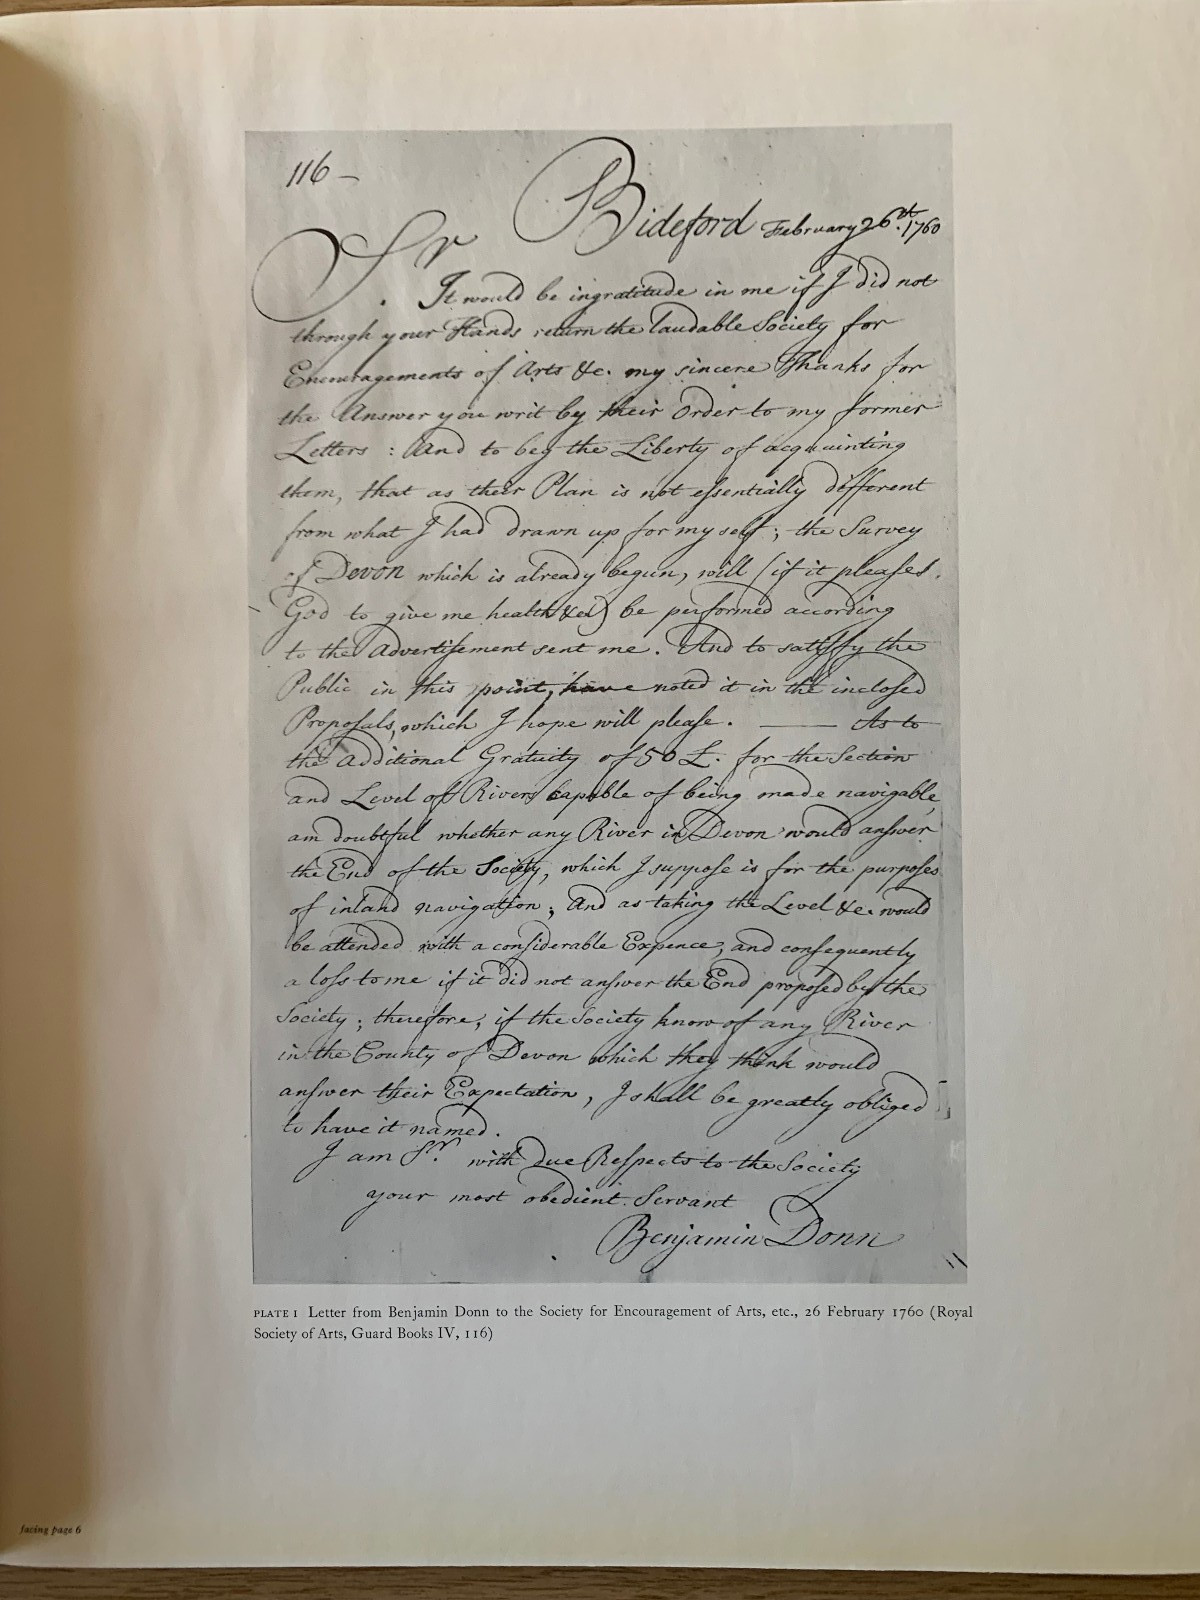 116 –
Bideford February 26th. 1760
Sr
It would be ingratitude in me if I did not
through your Hands return the laudable Society for
Encouragements of Arts &c. my sincere Thanks for
the Answer you writ by their Order to my former
Letters : And to beg the Liberty of acquainting
them, that as their Plan is not eſsentially different
from what I had drawn up for my self ; the Survey
of Devon which is already begun, will (if it pleaſes
God to give me health &c) be performed according
to the Advertiſement sent me. And to satiſfy the
Public in this point, have noted it in the inclosed
Propoſals, which I hope will please. — As to
the Additional Gratuity of 50 £. for the Section
and Level of Rivers capable of being made navigable,
am doubtful whether any River in Devon would anſwer
the End of the Society, which I suppoſe is for the purpoſes
of inland navigation ; And as taking the Level &c. would
be attended with a conſiderable Expence, and conſequently
a loſs to me if it did not anſwer the End propoſed by the
Society ; therefore, if the Society know of any River
in the County of Devon which they think would
anſwer their Expectation, I shall be greatly obliged
to have it named.
I am Sr. with due Reſpects to the Society
your most obedient Servant
Benjamin Donn
PLATE I Letter from Benjamin Donn to the Society for Encouragement of Arts, etc., 26 February 1760 (Royal
Society of Arts, Guard Books IV, 116)
facing page 6